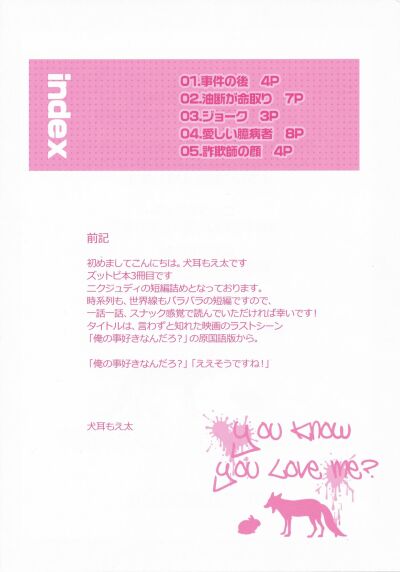 index
01.事件の後 4P
02.油断が命取り 7P
03.ジョーク 3P
04.愛しい臆病者 8P
05.詐欺師の顔 4P
前記
初めましてこんにちは。犬耳もえ太です
ズットピ本3冊目です
ニクジュディの短編詰めとなっております。
時系列も、世界線もバラバラの短編ですので、
一話一話、スナック感覚で読んでいただければ幸いです!
タイトルは、言わずと知れた映画のラストシーン
「俺の事好きなんだろ?」の原国語版から。
「俺の事好きなんだろ?」「ええそうですね!」
犬耳もえ太
you know
you love me?